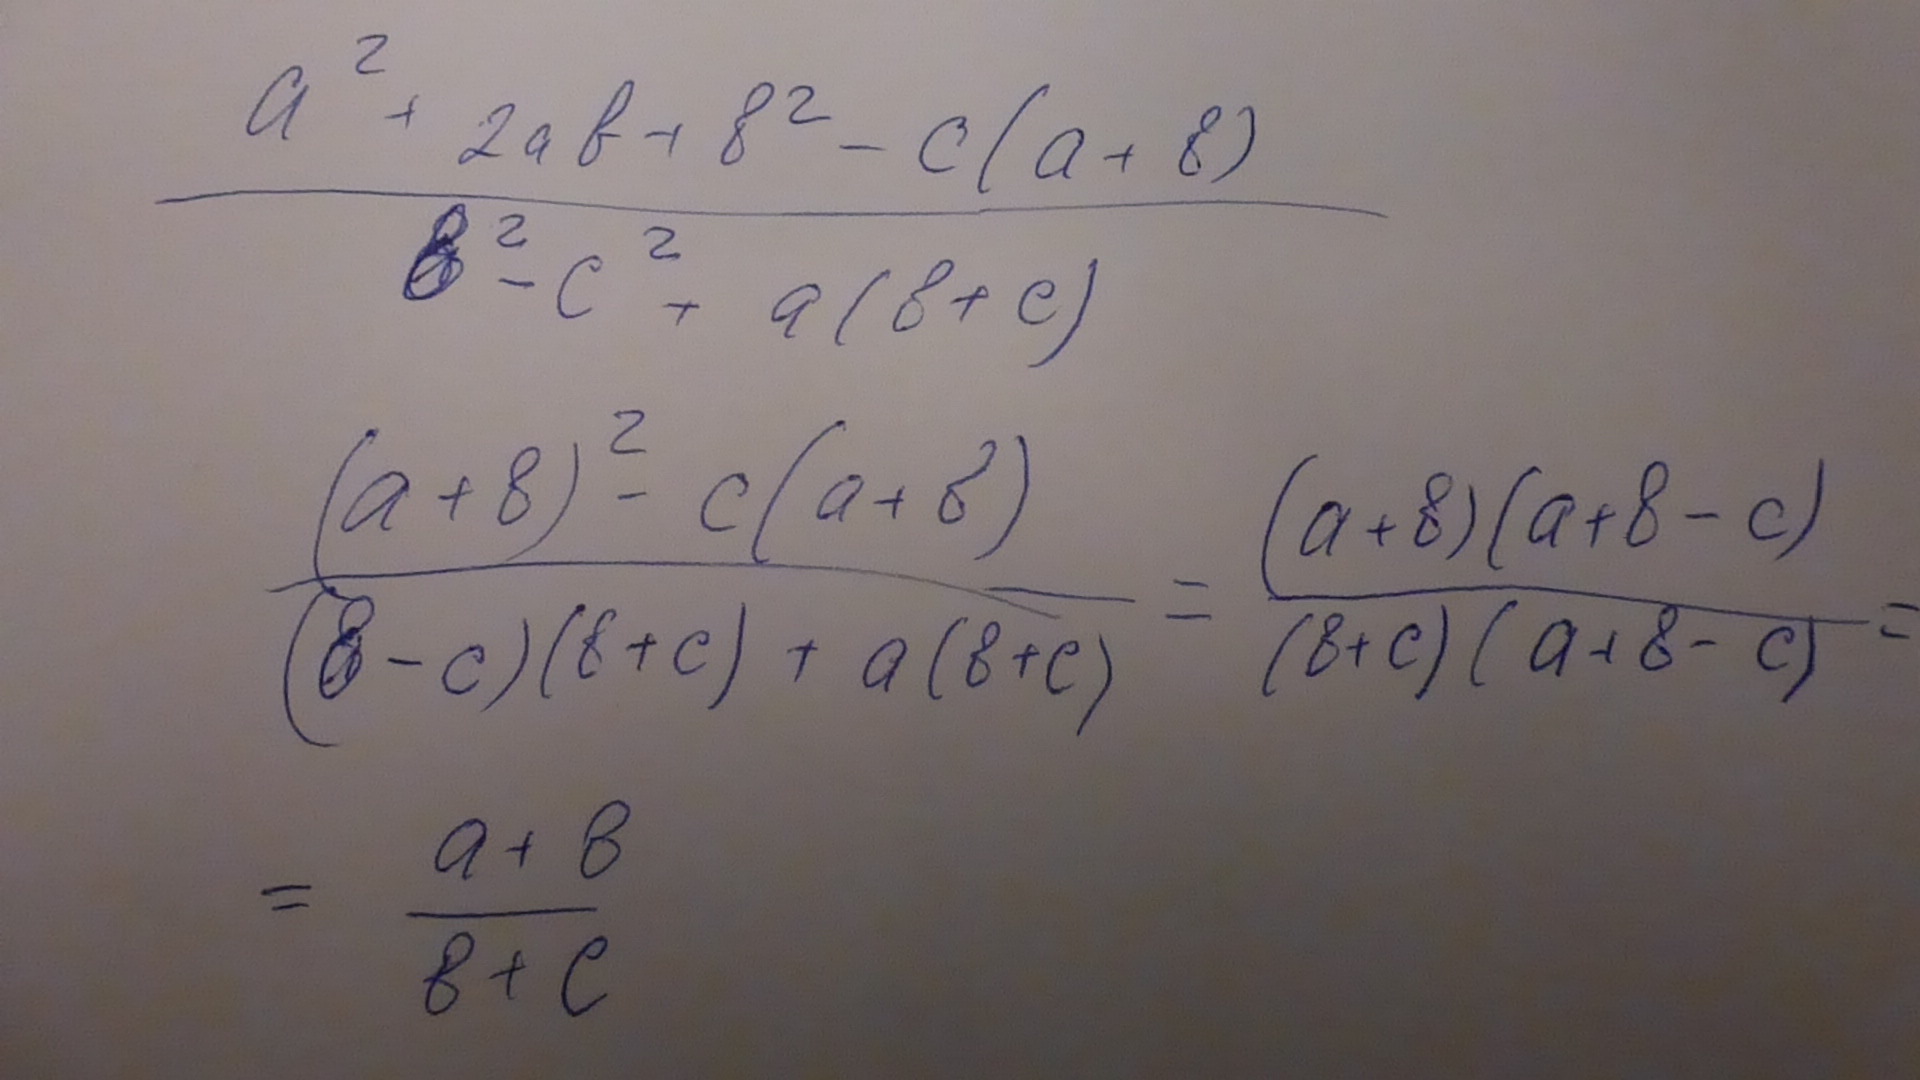 a² + 2ab + b² - c(a + b)
b² - c² + a(b + c)
(a + b)² - c(a + b) = (a + b)(a + b - c)
(b - c)(b + c) + a(b + c) (b + c)(a + b - c) =
= a + b
b + c